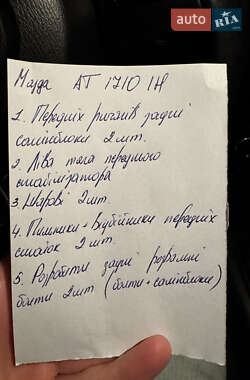 AUTO RIA
Мазда AT 1710 IH
1. Передніх ричагів задні
сайлнблоки 2 шт.
2. Ліва тяга переднього
стабілізатора
3 Шарові 2 шт.
4. Пильники + відбійники передніх
стоїок 2 шт.
5. Розробити задні розвальні
болти 2 шт (болти + сайлнблоки)